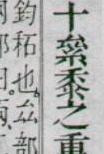 十絫黍之重
鈞䄷也。厽部